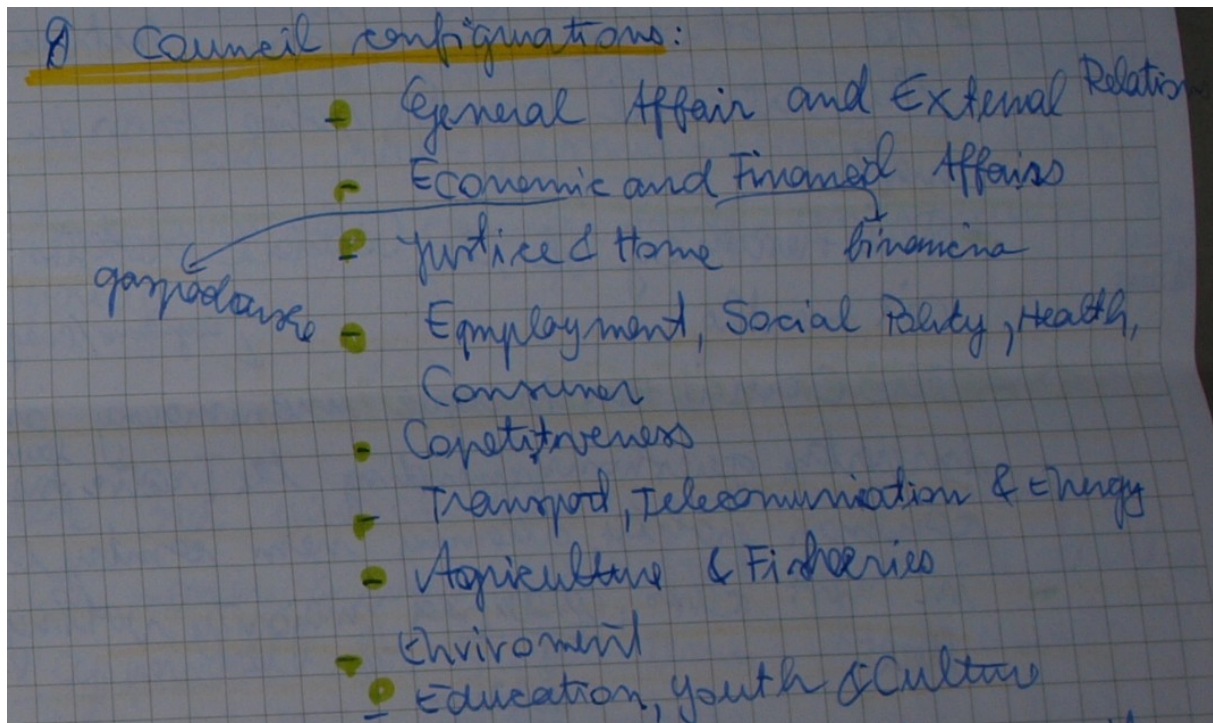 Council configurations:
- General Affair and External Relations
- Economic and Financial Affairs
- Justice & Home financina
gospodarske
- Eqmployment, Social Polity, Health,
Consumer
- Copetitiveness
- Transport, Telecomunication & Energy
- Agriculture & Fisheries
- Enviroment
- Education, youth & Culture